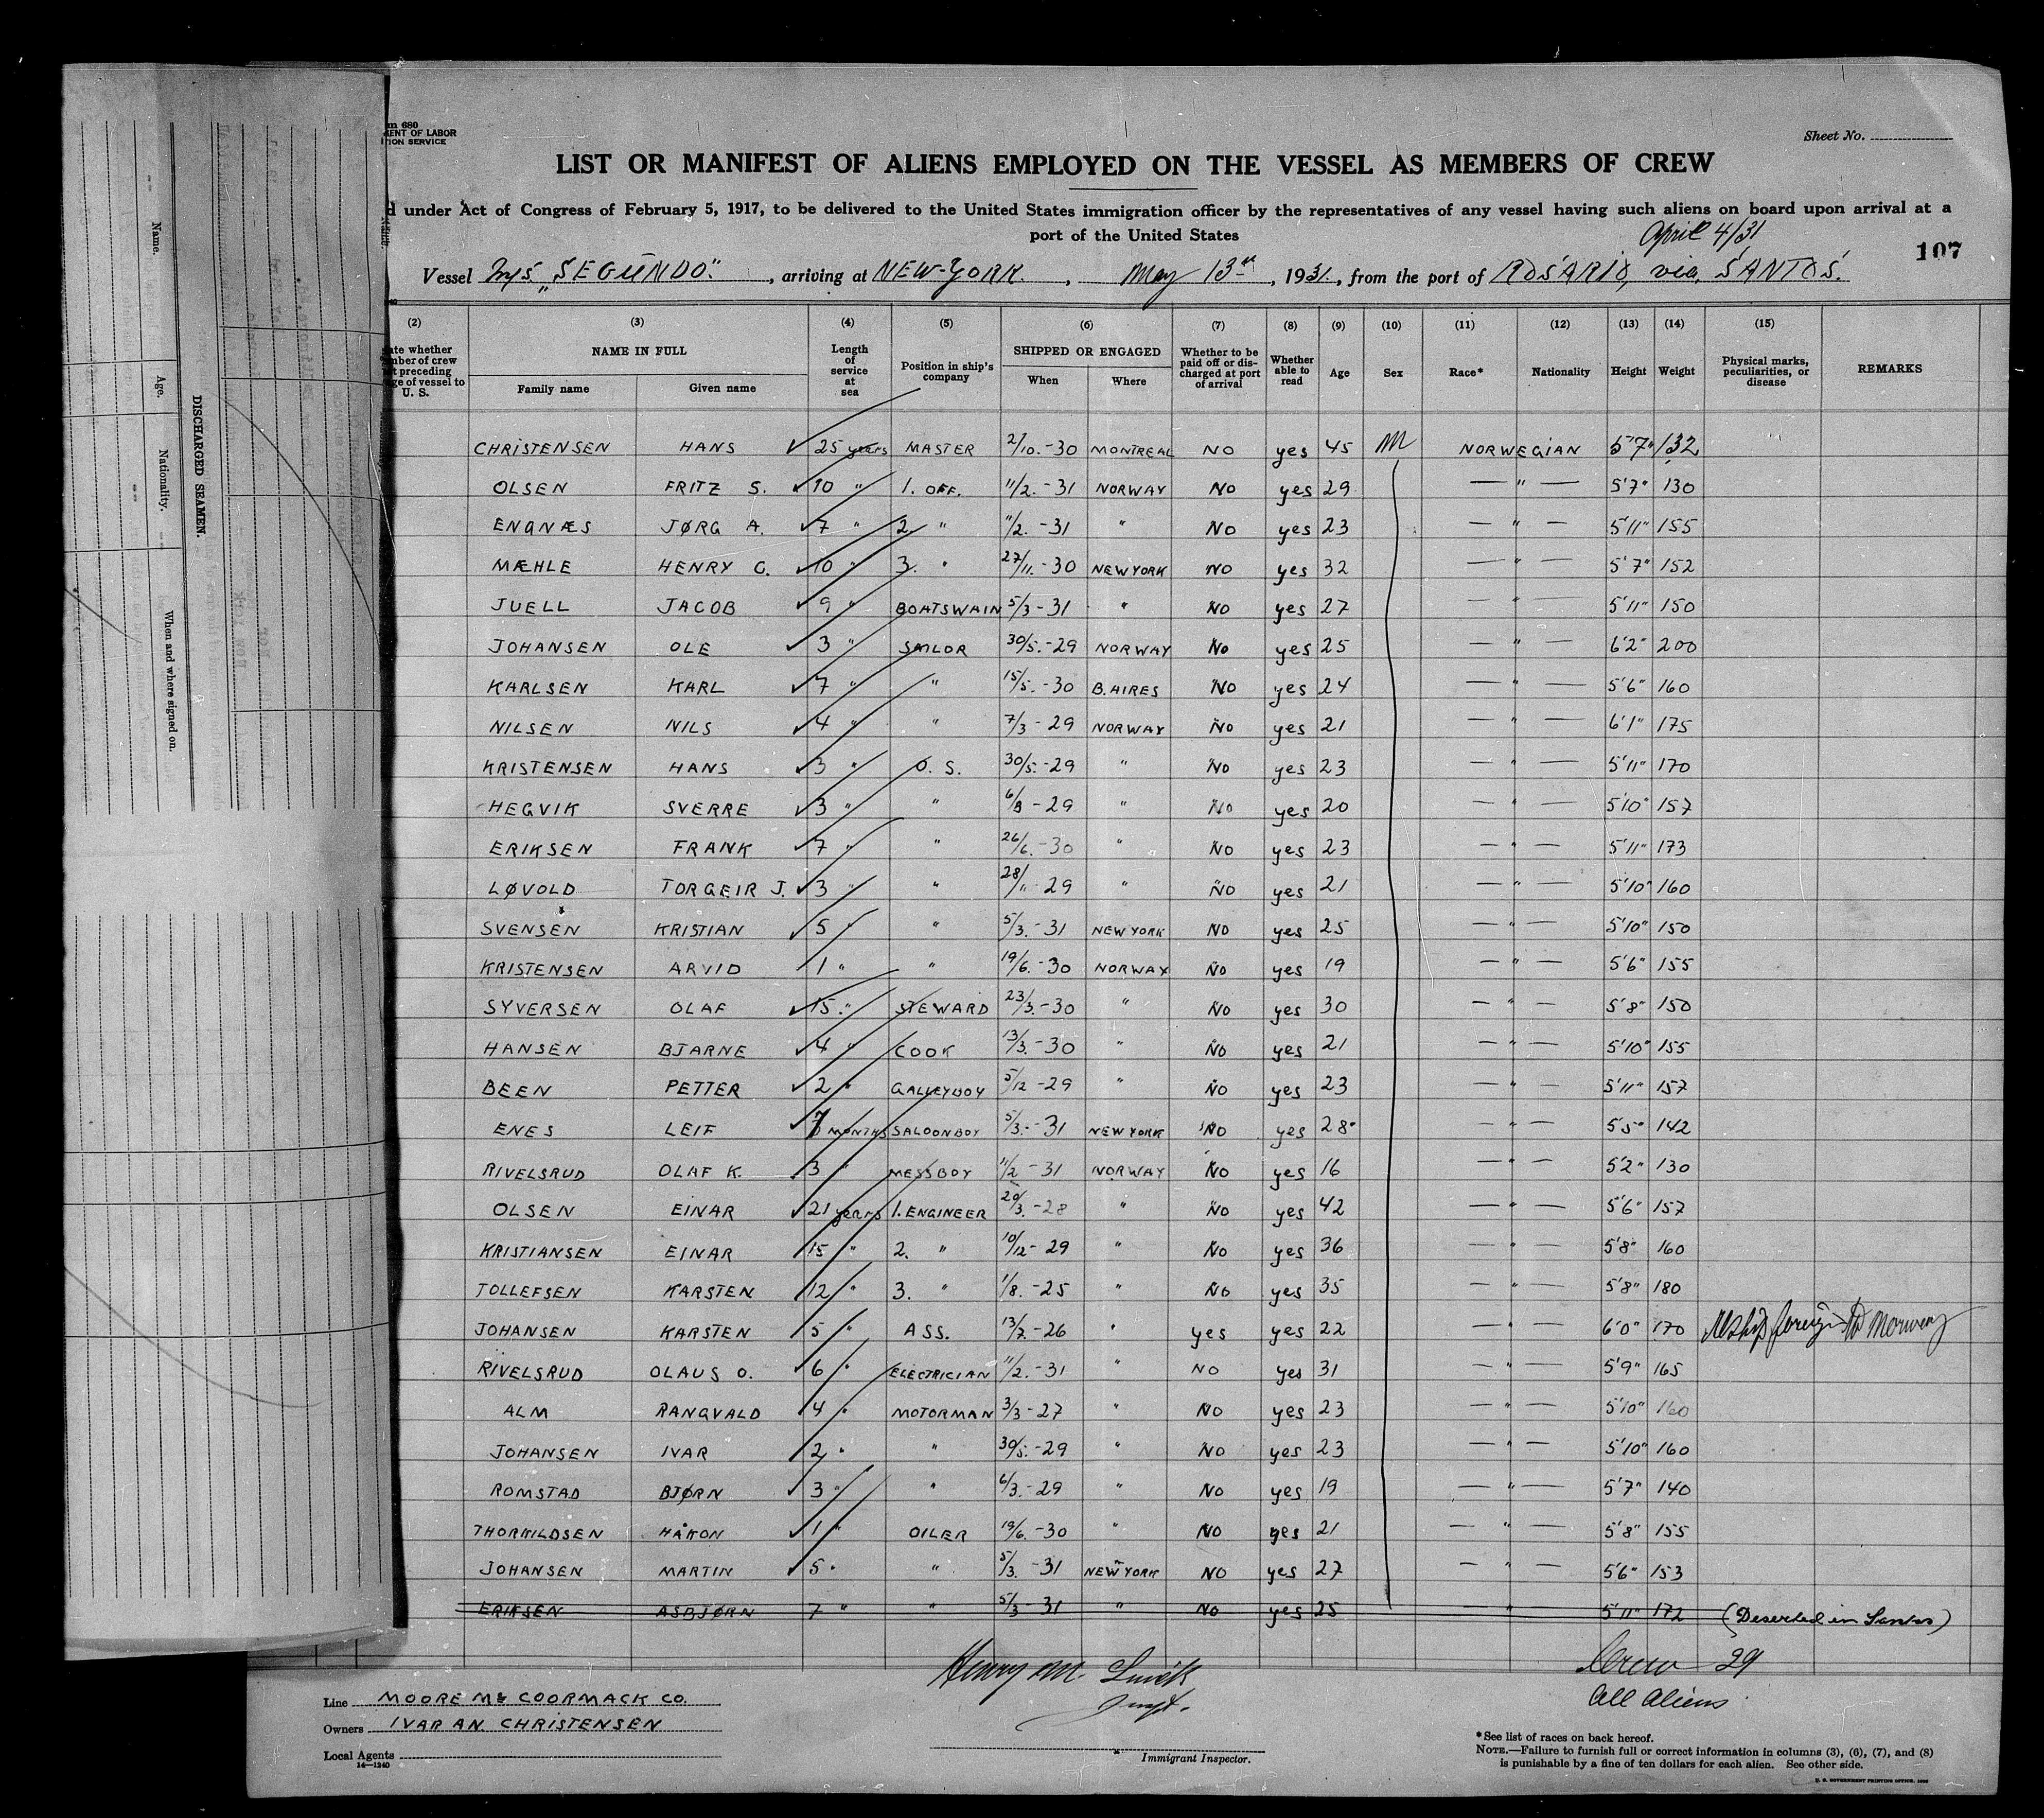 m 680
MENT OF LABOR
TION SERVICE
Sheet No.
LIST OR MANIFEST OF ALIENS EMPLOYED ON THE VESSEL AS MEMBERS OF CREW
d under Act of Congress of February 5, 1917, to be delivered to the United States immigration officer by the representatives of any vessel having such aliens on board upon arrival at a
port of the United States
April 4/31
107
Vessel M/S "SEGUNDO", arriving at NEW-YORK, May 13th, 1931, from the port of ROSARIO, via, SANTOS.
(2) (3) (4) (5) (6) (7) (8) (9) (10) (11) (12) (13) (14) (15)
NAME IN FULL
Family name Given name
Length of service at sea
Position in ship's company
SHIPPED OR ENGAGED
When Where
Whether to be paid off or discharged at port of arrival
Whether able to read
Age Sex Race* Nationality Height Weight
Physical marks, peculiarities, or disease
REMARKS
CHRISTENSEN HANS 25 years MASTER 2/10.-30 MONTREAL NO yes 45 M NORWEGIAN 5'7" 132
OLSEN FRITZ S. 10 " 1. OFF. 11/2.-31 NORWAY NO yes 29 — " — 5'7" 130
ENGNÆS JØRG A. 7 " 2 " 11/2.-31 " NO yes 23 — " — 5'11" 155
MÆHLE HENRY C. 10 " 3. " 27/11.-30 NEW YORK NO yes 32 — " — 5'7" 152
JUELL JACOB 9 " BOATSWAIN 5/3-31 " NO yes 27 — " — 5'11" 150
JOHANSEN OLE 3 " SAILOR 30/5.-29 NORWAY NO yes 25 — " — 6'2" 200
KARLSEN KARL 7 " " 15/5.-30 B. AIRES NO yes 24 — " — 5'6" 160
NILSEN NILS 4 " " 7/3-29 NORWAY NO yes 21 — " — 6'1" 175
KRISTENSEN HANS 3 " O. S. 30/5.-29 " NO yes 23 — " — 5'11" 170
HEGVIK SVERRE 3 " " 6/8-29 " NO yes 20 — " — 5'10" 157
ERIKSEN FRANK 7 " " 26/6.-30 " NO yes 23 — " — 5'11" 173
LØVOLD TORGEIR J. 3 " " 28/11-29 " NO yes 21 — " — 5'10" 160
SVENSEN KRISTIAN 5 " " 5/3.-31 NEW YORK NO yes 25 — " — 5'10" 150
KRISTENSEN ARVID 1 " " 19/6.-30 NORWAY NO yes 19 — " — 5'6" 155
SYVERSEN OLAF 15 " STEWARD 23/3.-30 " NO yes 30 — " — 5'8" 150
HANSEN BJARNE 4 " COOK 13/3.-30 " NO yes 21 — " — 5'10" 155
BEEN PETTER 2 " GALLEYBOY 5/12-29 " NO yes 23 — " — 5'11" 157
ENES LEIF 7 MONTHS SALOONBOY 5/3.-31 NEW YORK NO yes 28 — " — 5'5" 142
RIVELSRUD OLAF K. 3 " MESSBOY 11/2-31 NORWAY NO yes 16 — " — 5'2" 130
OLSEN EINAR 21 years 1. ENGINEER 20/3.-28 " NO yes 42 — " — 5'6" 157
KRISTIANSEN EINAR 15 " 2. " 10/12-29 " NO yes 36 — " — 5'8" 160
TOLLEFSEN KARSTEN 12 " 3. " 1/8.-25 " NO yes 35 — " — 5'8" 180
JOHANSEN KARSTEN 5 " ASS. 13/7.-26 " yes yes 22 — " — 6'0" 170 Reship foreign to Norway
RIVELSRUD OLAUS O. 6 " ELECTRICIAN 11/2.-31 " NO yes 31 — " — 5'9" 165
ALM RANGVALD 4 " MOTORMAN 3/3-27 " NO yes 23 — " — 5'10" 160
JOHANSEN IVAR 2 " " 30/5.-29 " NO yes 23 — " — 5'10" 160
ROMSTAD BJØRN 3 " " 6/3.-29 " NO yes 19 — " — 5'7" 140
THORKILDSEN HÅKON 1 " OILER 19/6.-30 " NO yes 21 — " — 5'8" 155
JOHANSEN MARTIN 5 " " 5/3.-31 NEW YORK NO yes 27 — " — 5'6" 153
ERIKSEN ASBJØRN 7 " " 5/3-31 " NO yes 25 — " 5'11" 172 (Deserted in Santos)
Crew 29
All Aliens
Henry M.
Line MOORE Mc COORMACK CO.
Owners IVAR AN. CHRISTENSEN
Local Agents
14—1240
Immigrant Inspector.
*See list of races on back hereof.
NOTE.—Failure to furnish full or correct information in columns (3), (6), (7), and (8)
is punishable by a fine of ten dollars for each alien. See other side.
DISCHARGED SEAMEN
Name. Age. Nationality. When and where signed on.